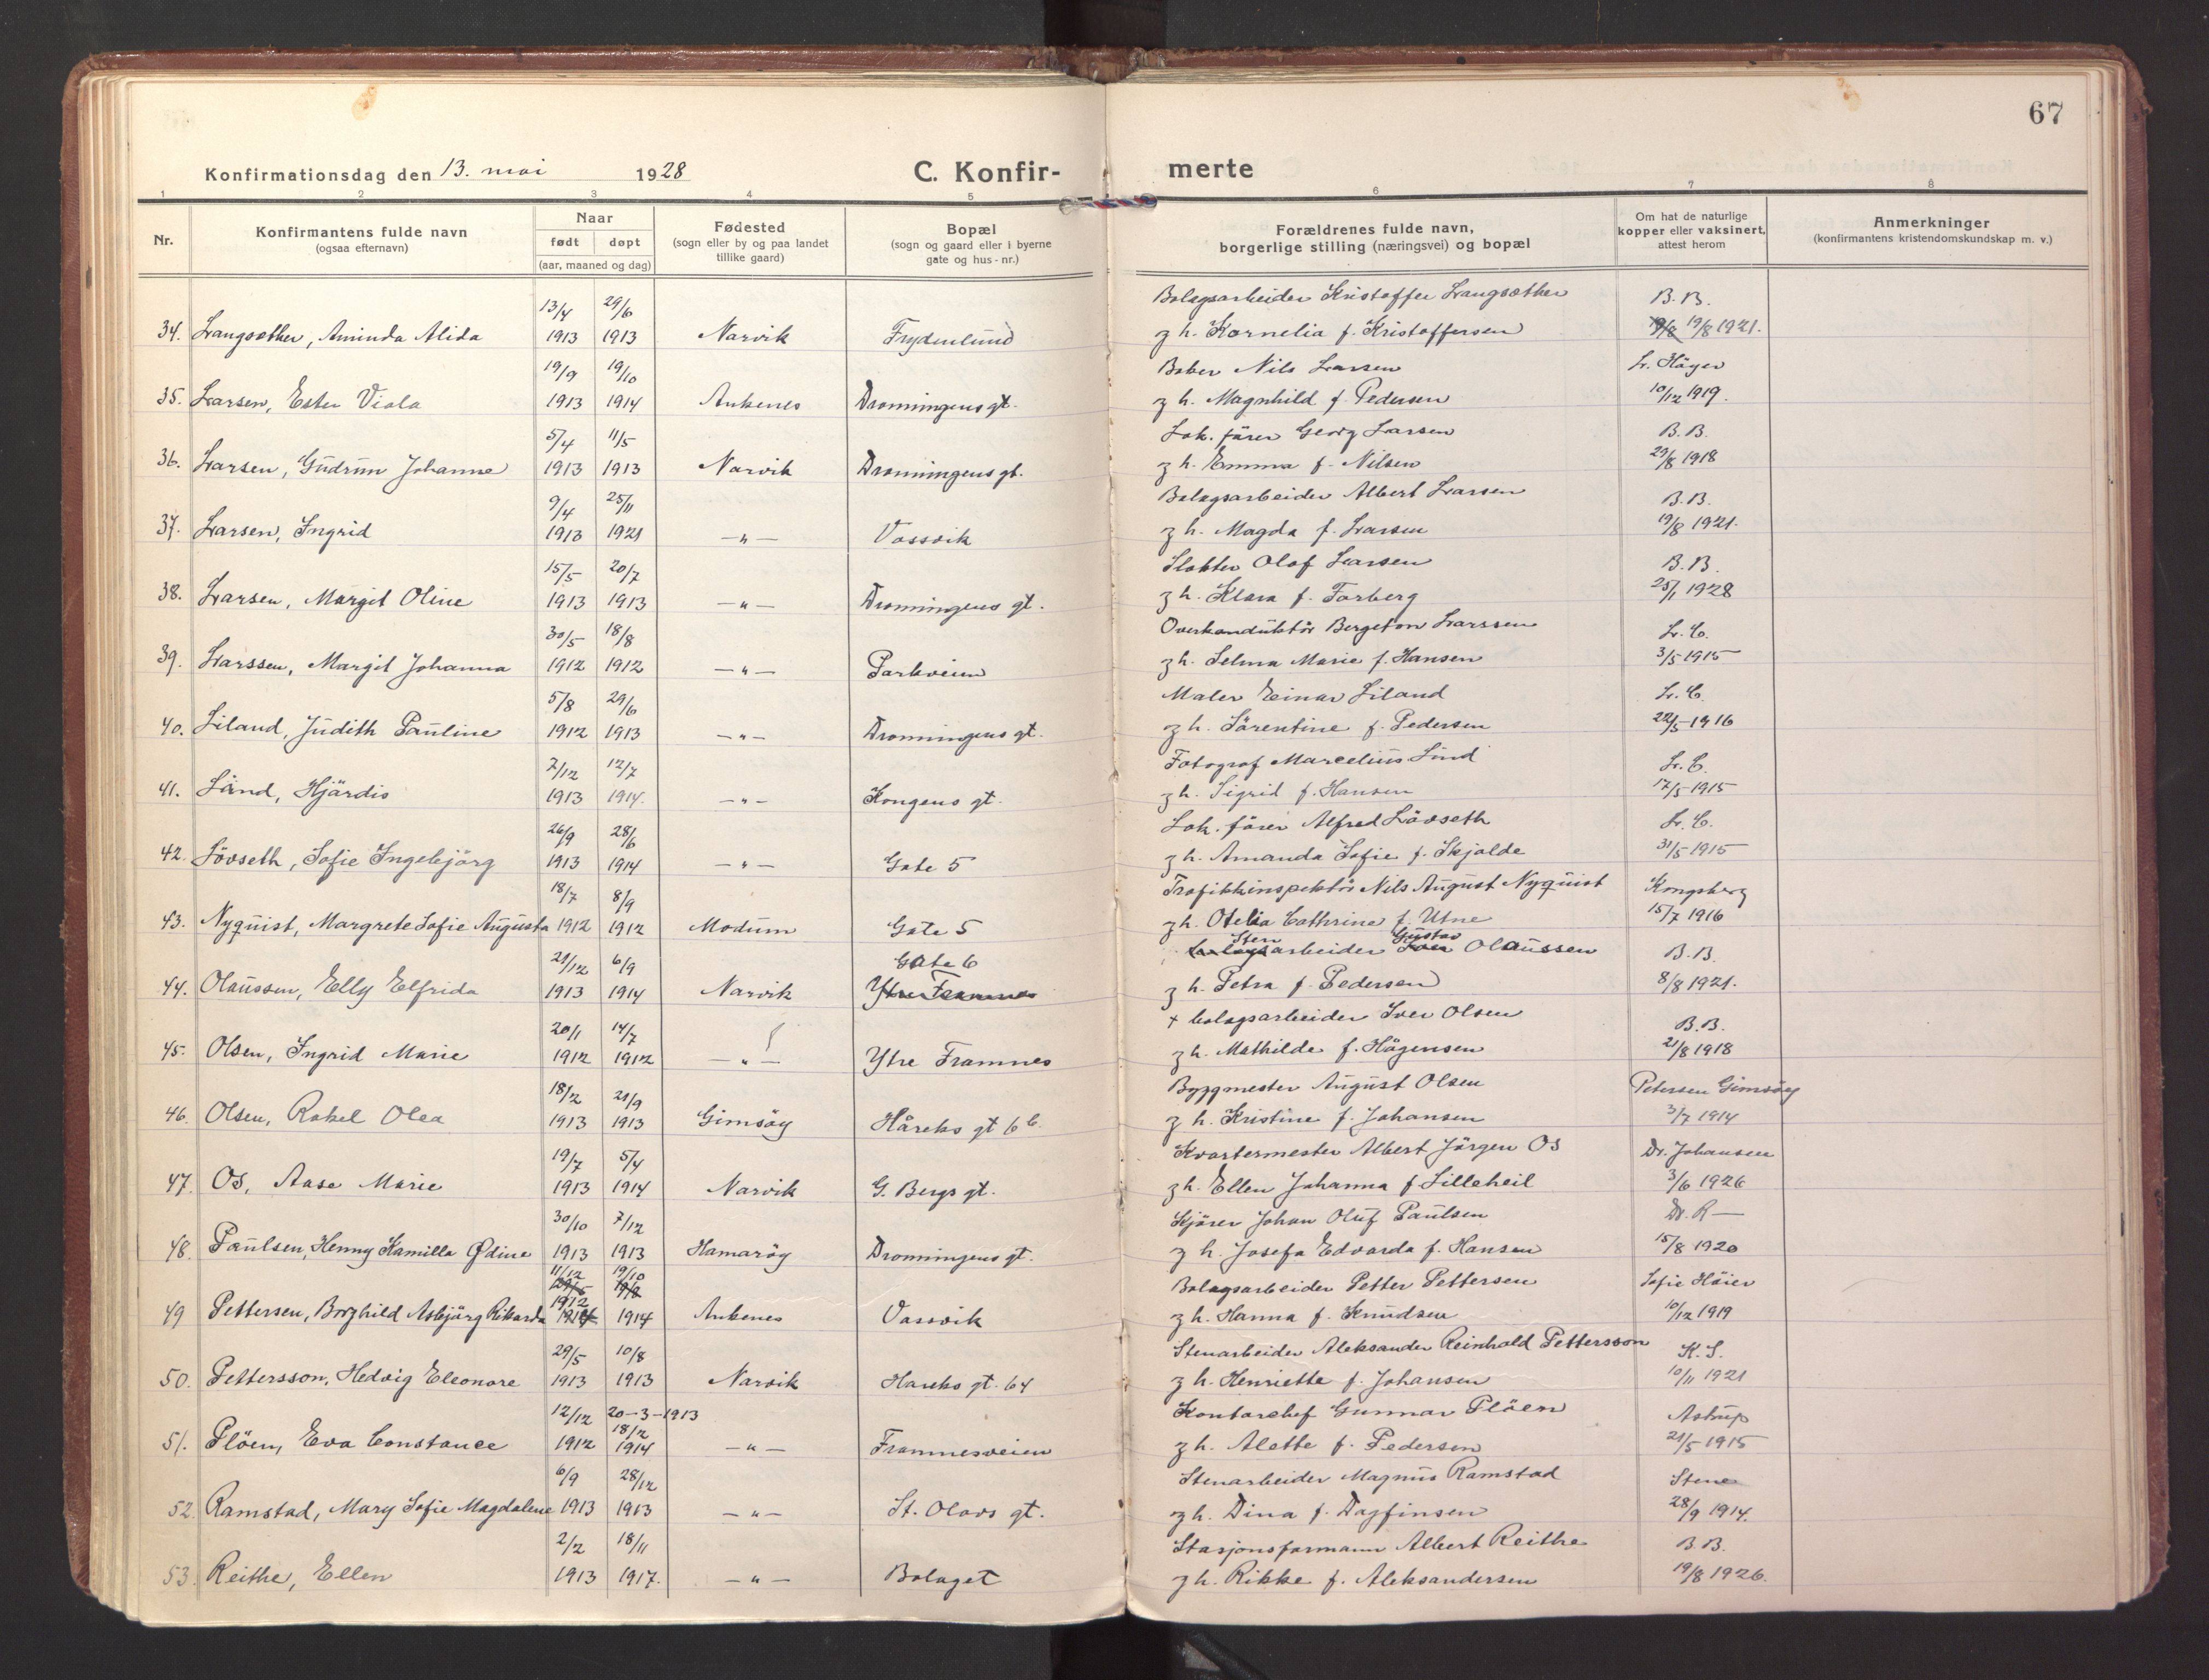 67
Konfirmationsdag den 13. mai 1928
C. Konfir-
merte
1 2 3 4 5 6 7 8
Nr.
Konfirmantens fulde navn
(ogsaa efternavn)
Naar
født døpt
(aar, maaned og dag)
Fødested
(sogn eller by og paa landet
tillike gaard)
Bopæl
(sogn og gaard eller i byerne
gate og hus-nr.)
Forældrenes fulde navn,
borgerlige stilling (næringsvei) og bopæl
Om hat de naturlige
kopper eller vaksinert,
attest herom
Anmerkninger
(konfirmantens kristendomskundskap m. v.)
13/4 29/6 Bolagsarbeider Kristoffer Langsæther B.B.
34. Langsæther, Aminda Alida 1913 1913 Narvik Frydenlund g h. Kornelia f. Kristoffersen 19/8 19/8 1921.
19/9 19/10 Baker Nils Larsen Lr. Höyer
35. Larsen, Ester Viola 1913 1914 Ankenes Dronningens gt. g h. Magnhild f. Pedersen 10/12 1919.
5/4 11/5 Lok. fører Georg Larsen B.B.
36. Larsen, Gudrun Johanne 1913 1913 Narvik Dronningens gt. g h. Emma f. Nilsen 29/8 1918
9/4 25/11 Bolagsarbeider Albert Larsen B.B.
37. Larsen, Ingrid 1913 1921 —"— Vassvik g h. Magda f. Larsen 19/8 1921.
15/5 20/7 Slakter Olaf Larsen B.B.
38. Larsen, Margit Oline 1913 1913 —"— Dronningens gt. g h. Klara f. Forberg 25/1 1928
30/5 18/8 Overkonduktör Bergeton Larssen Lr. C.
39. Larssen, Margit Johanna 1912 1912 —"— Parkveien g h. Selma Marie f. Hansen 3/5 1915
5/8 29/6 Maler Einar Liland Lr. C.
40. Liland, Judith Pauline 1912 1913 —"— Dronningens gt. g h. Sörentine f. Pedersen 22/5-1916
7/12 12/7 Fotograf Marcelius Lund Lr. C.
41. Lund, Hjördis 1913 1914. —"— Kongens gt. g h. Sigrid f. Hansen 17/5-1915
26/9 28/6 Lok. fører Alfred Lövseth Lr. C.
42. Lövseth, Sofie Ingebjörg 1913 1914 —"— Gate 5 g h. Amanda Sofie f. Skjolde 31/5 1915
18/7 8/9 Trafikkinspektör Nils August Nyquist Kongsberg
43. Nyquist, Margrete Sofie Augusta 1912 1912 Modum Gate 5 g h. Otelia Cathrine f. Utne 15/7 1916
21/12 6/9 Gate 6 Sten arbeider Gustav Olaussen B.B.
44. Olaussen, Elly Elfrida 1913 1914 Narvik Ytre Framnes g h. Petra f. Pedersen 8/8 1921.
20/1 14/7 + bolagsarbeider Iver Olsen B.B.
45. Olsen, Ingrid Marie 1912 1912 —"— Ytre Framnes g h. Mathilde f. Hågensen 21/8 1918
18/2 21/9 Byggmester August Olsen Petersen Gimsöy
46. Olsen, Rakel Olea 1913 1913 Gimsöy Håreks gt 6 b. g h. Kristine f. Johansen 3/7 1914
19/7 5/4 Kvartermester Albert Jörgen Os Dr. Johansen
47. Os, Aase Marie 1913 1914 Narvik G. Bergs gt. g h. Ellen Johanna f Lilleheil 3/6 1926
30/10 7/12 Kjörer Johan Oluf Paulsen Dr. R—
48. Paulsen, Henny Kamilla Ødine 1913 1913 Hamaröy Dronningens gt. g h. Josefa Edvarda f. Hansen 15/8 1920
11/12 19/10 Bolagsarbeider Petter Pettersen Sofie Höier
49 Pettersen, Borghild Asbjörg Rikarda 1912 1914 Ankenes Vassvik g h. Hanna f. Knudsen 10/12 1919
29/5 10/8 Stenarbeider Aleksander Reinhold Pettersson K.S.
50. Pettersson, Hedvig Eleonore 1913 1913 Narvik Hareks gt. 64 g h. Henriette f. Johansen 10/11 1921
12/12 20-3-1913 18/2 Kontorchef Gunnar Plöen Astrup
51. Plöen, Eva Constance 1912 1914 —"— Framnesveien g h. Alette f. Pedersen 21/5 1915
6/9 28/12 Stenarbeider Magnus Ramstad Stene
52. Ramstad, Mary Sofie Magdalene 1913 1913 —"— St. Olavs gt. g h. Dina f. Dagfinsen 28/9 1914.
2/2 18/11 Stasjonsformann Albert Reithe B.B.
53. Reithe, Ellen 1913 1917. —"— Bolaget g h. Rikke f. Aleksandersen 19/8 1926.